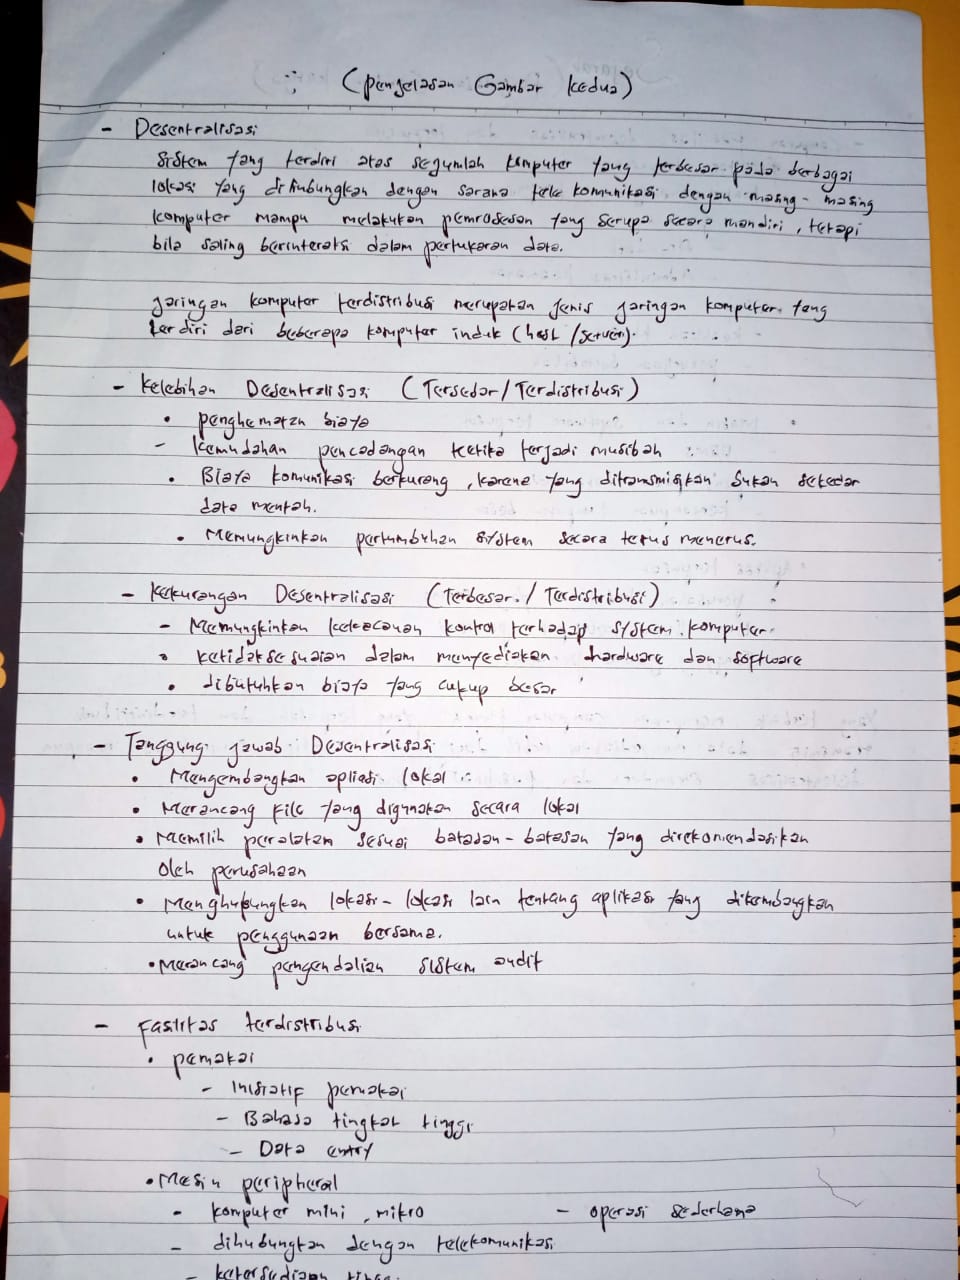 ∵ (Penjelasan Gambar kedua)
- Desentralisasi
Sistem yang terdiri atas sejumlah komputer yang terbesar pada berbagai
lokasi yang dihubungkan dengan sarana tele komunikasi dengan masing - masing
komputer mampu melakukan pemrosesan yang serupa secara mandiri, tetapi
bila saling berinteraksi dalam pertukaran data.
jaringan komputer terdistribusi merupakan jenis jaringan komputer yang
terdiri dari beberapa komputer induk (host / server).
- Kelebihan Desentralisasi (Tersebar / Terdistribusi)
• penghematan biaya
- kemudahan pencadangan ketika terjadi musibah
• Biaya komunikasi berkurang, karena yang ditransmisikan bukan sekedar
data mentah.
• Memungkinkan pertumbuhan system secara terus menerus.
- Kekurangan Desentralisasi (Terbesar / Terdistribusi)
- Memungkinkan kekacauan kontrol terhadap system komputer
• ketidaksesuaian dalam menyediakan hardware dan software
• dibutuhkan biaya yang cukup besar
- Tanggung jawab Desentralisasi
• Mengembangkan apliasi lokal
• Merancang File yang digunakan secara lokal
• Memilih peralatan sesuai batasan - batasan yang direkomendasikan
oleh perusahaan
• Menghubungkan lokasi - lokasi lain tentang aplikasi yang dikembangkan
untuk penggunaan bersama.
• Merancang pengendalian sistem audit
- Fasilitas terdistribusi
• pemakai
- Inisiatif pemakai
- Bahasa tingkat tinggi
- Data entry
• Mesin peripheral
- komputer mini, mikro - operasi sederhana
- dihubungkan dengan telekomunikasi
- ketersediaan tinggi